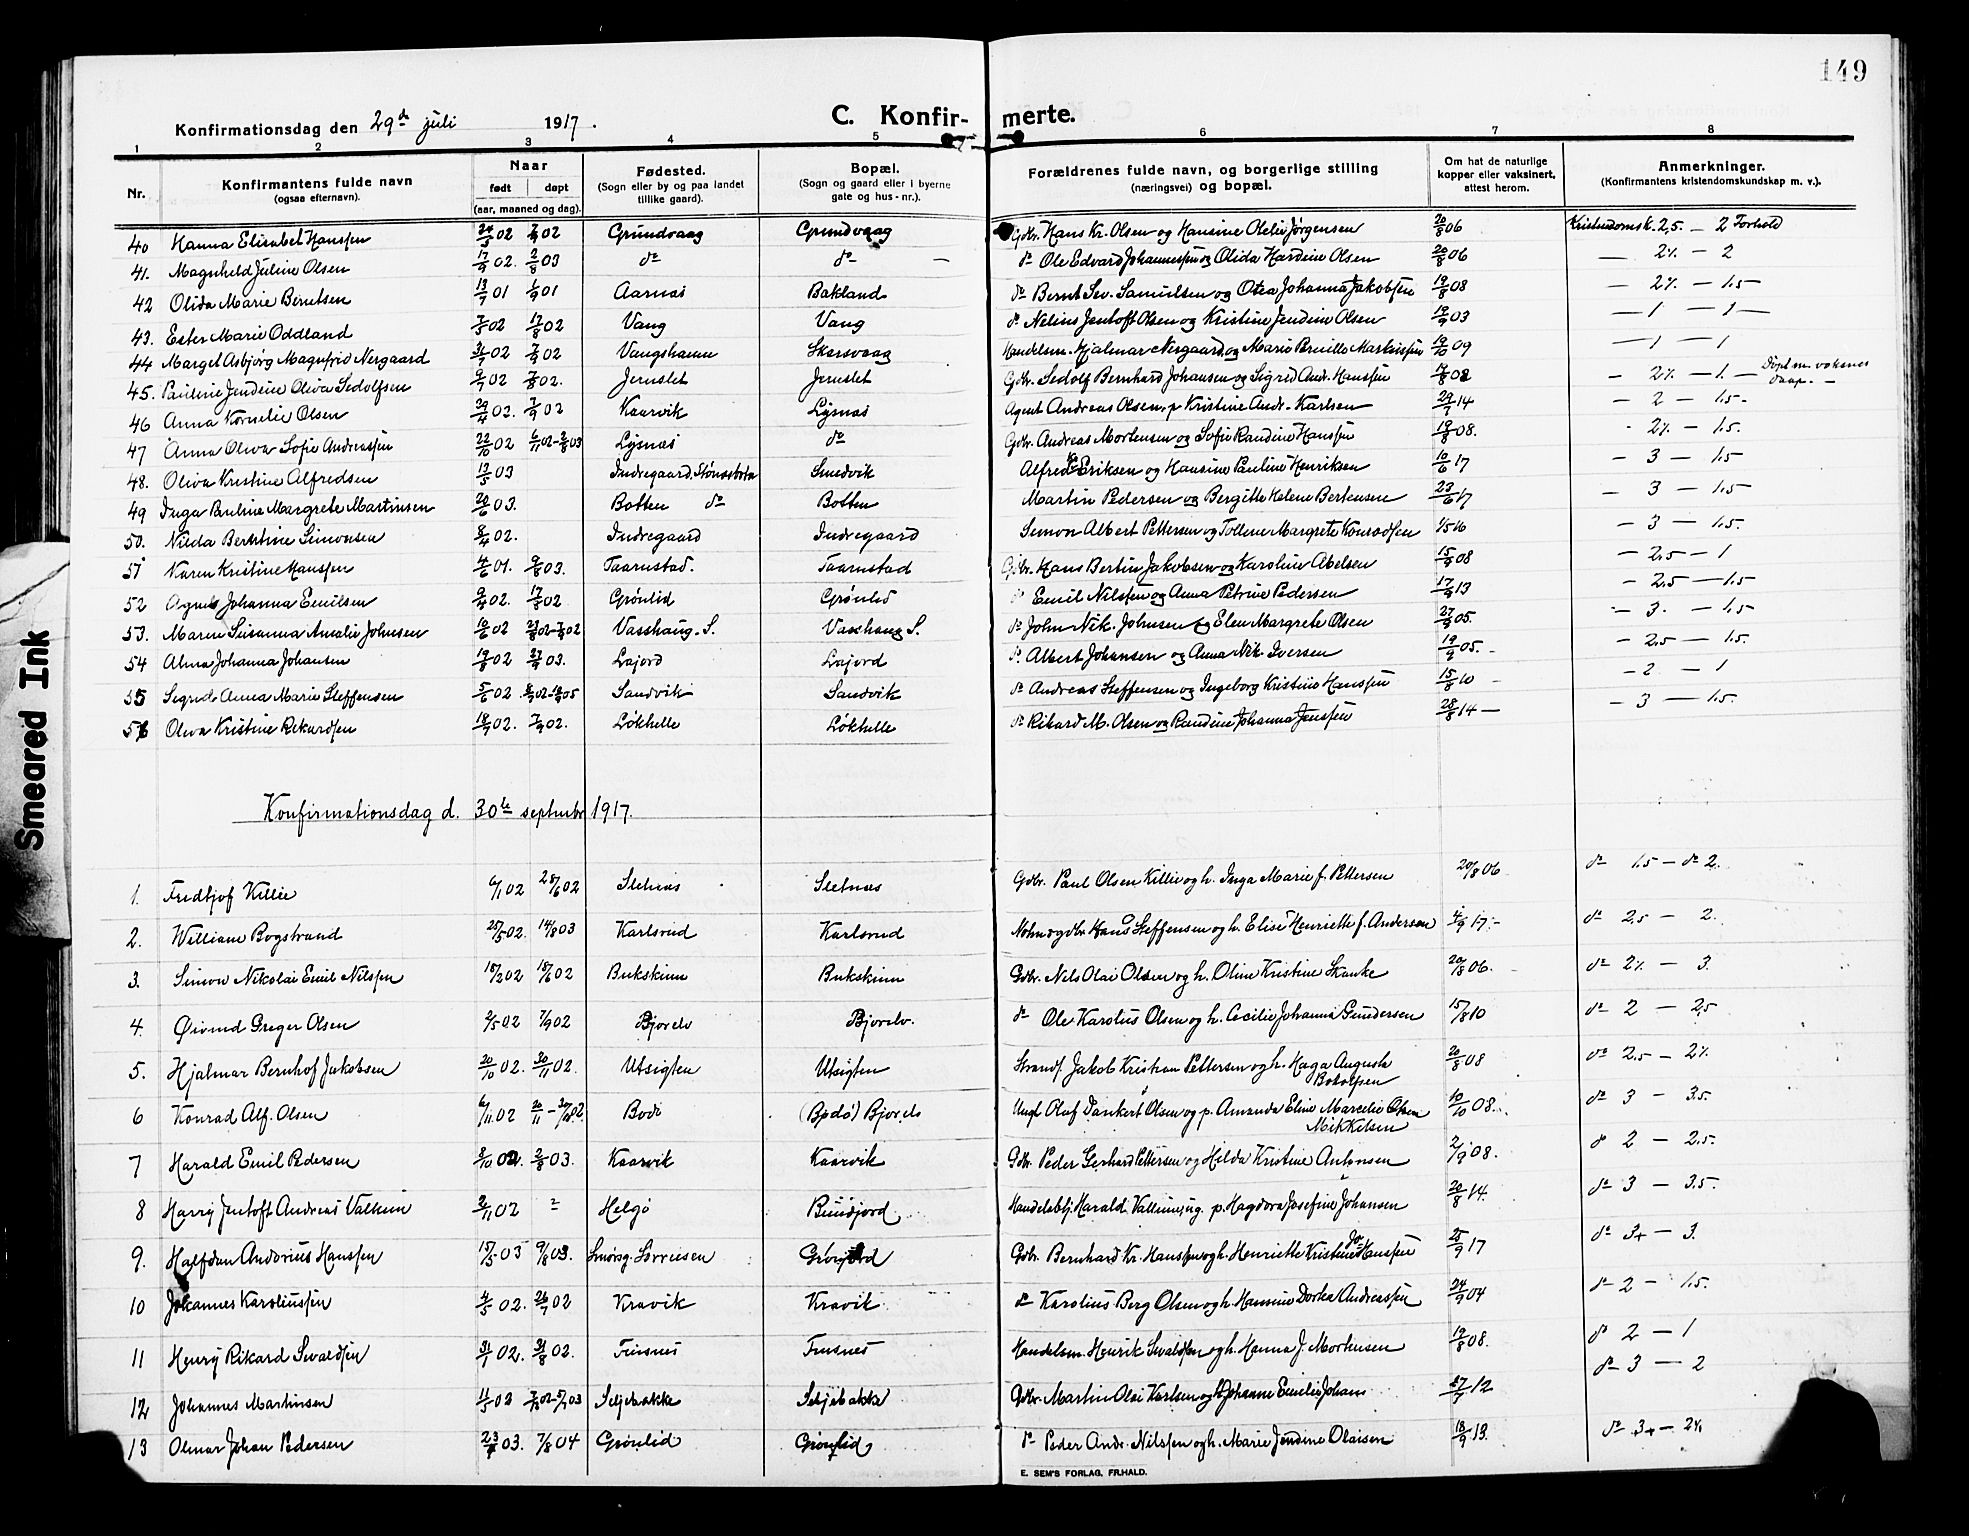 149
Konfirmationsdag den 29de juli 1917.
C. Konfirmerte.
1 2 3 4 5 6 7 8
Nr. Konfirmantens fulde navn (ogsaa efternavn). Naar født døpt (aar, maaned og dag). Fødested. (Sogn eller by og paa landet tillike gaard). Bopæl. (Sogn og gaard eller i byerne gate og hus-nr.). Forældrenes fulde navn, og borgerlige stilling (næringsvei) og bopæl. Om hat de naturlige kopper eller vaksinert, attest herom. Anmerkninger. (Konfirmantens kristendomskundskap m. v.).
40 Hanna Elisabet Hanssen 24/5 02 7/9 02 Grundvaag Grundvaag Gdbr. Hans Kr. Olsen og Hansine Jørgensen 20/8 06 Kristendomsk. 2,5 — 2 Forhold
41. Magnhild Juline Olsen 17/9 02. 2/8 03 do do — do Ole Edvard Johannessen og Olida Hardine Olsen 20/8 06 — 2% — 2
42 Olida Marie Berntsen 13/7 01 1/9 01 Aarnes Bakland do Bernt Sev. Samuelsen og Otea Johanna Jakobsen 19/8 08 — 2% — 1.5 —
43. Ester Marie Oddland 7/5 02 17/8 02 Vang Vang do Nelius Jentoft Olsen og Kristine Jendine Olsen 19/9 03 — 1 — 1 —
44 Marget Asbjørg Magnfrid Nergaard 31/7 02 7/9 02 Vangshamn Skarsvaag Handelsm. Hjalmar Nergaard og Marie Markussen 19/10 09 — 1 — 1
45. Pauline Jendine Oliva Sedolfsen 9/7 02 7/8 02. Jernslet Jernslet Gdbr. Sedolf Bernhard Johansen og Sigrid Andr. Hanssen 17/8 08 — 2% — 1. — Døpt m. voksnes daap. —
46 Anna Kornelie Olsen 29/4 02. 7/9 02 Kaarvik Lysnes Agent Andreas Olsen, p. Kristine Andr. Karlsen 29/7 14 — 2 — 1.5 -
47 Anna Oliva Sofie Andreassen 22/10 02 6/11 02 - 2/8 03 Lysnes do Gdbr. Andreas Mortensen og Sofie Randine Hanssen 19/8 08. - 2% — 1.5.
48. Oliva Kristine Alfredsen 13/5 03 Indregaard, Stønesbotn Smedvik Alfred Kr. Eriksen og Hansine Pauline Henriksen 10/6 17 — 3 — 1.5
49 Inga Pauline Margrete Martinsen 20/6 03. Botten do Botten Martin Pedersen og Bergitte Helene Bertensen 23/6 17 — 3 — 1.5
50. Nilda Berntine Simonsen 8/4 02. Indregaard Indregaard Simon Albert Pettersen og Tolline Margrete Konradsen 1/5 16 — 3 — 1.5.
51 Karen Kristine Hanssen 4/6 01. 2/8 03. Taarnstad. Taarnstad Gdbr. Hans Bertin Jakobsen og Karoline Abelsen 15/9 08 — 2.5 — 1
52 Agnes Johanna Emilsen 9/4 02. 17/8 02 Grönlid Grönlid do Emil Nilssen og Anna Petrine Pedersen 17/9 13 - 2.5 — 1.5
53. Maren Susanna Amalie Johnsen 10/6 02 23/8 02 - 7/9 02 Vasshaug. S. Vasshaug S. do John Nik. Johnsen og Elen Margrete Olsen 27/9 05. — 3. — 1.5
54 Alma Johanna Johansen 19/8 02 27/9 03. Lajord Lajord do Albert Johansen og Anna Nik. Iversen 19/9 05. - - 2.5 — 1.5.
55 Sigrid Anna Marie Steffensen 5/6 02. Sandvik Sandvik do Andreas Steffensen og Ingeborg Kristine Hanssen 15/8 10 — - 2 — 1
56 Oliva Kristine Rikardsen 18/7 02. 7/9 02. Løkhelle Løkhelle do Rikard M. Olsen og Randine Johanna Jenssen 28/8 14 — - 3 — 1.5.
Konfirmationsdag d. 30te septembr 1917.
1. Fredtjof Killie 6/1 02 28/6 02 Sletnes Sletnæs Gdbr. Paul Olsen Killie og h. Inga Marie f. Pettersen 20/8 06 do 1.5 — do 2.
2. William Bogstrand 25/5 02. 14/8 03 Karlsrud Karlsrud Hans Steffensen og h. Elise Henriette f. Andersen 4/9 17. - do 2,5 — 2.
3. Simon Nikolai Emil Nilssen 18/2 02 15/6 02 Bukskinn Bukskinn Gdbr. Nels Olai Olsen og h. Oline Kristine Skanke 20/8 06. - do 2% — 3.
4 Øivind Greger Olsen 2/5 02 7/9 02 Bjorelv Bjorelv. do Ole Karolius Olsen og h. Cecilie Johanna Gundersen 15/8 10 do 2 — 2,5
5. Hjalmar Bernhof Jakobsen 20/10 02. 30/11 02. Utsigten Utsigten Strands. Jakob Kristian Pettersen og h. Haga Augusta Botolfsen 20/8 08 do 2.5 — 2%
6 Konrad Alf. Olsen 6/11 02 Bodö (Bodö) Bjorelv Ungk. Oluf Dankert Olsen og p. Amanda Eline Marcelie Olsen Mikkelsen 10/10 08.. do 3 — 3.5
7 Harald Emil Pedersen 8/10 02. 2/8 03. Kaarvik Kaarvik Gdbr. Peder Gerhard Pettersen og Hilda Kristine Antonsen 2/9 08. do 2 — 2.5.
8 Harry Jentoft Andreas Valheim 2/11 02 = Helgö Bundjord Handelsbtj. Harald Vallum, ug. p. Hagdora Josefine Johansen 20/8 14. do 3 — 3.5.
9. Halfdan Andorius Hanssen 15/5 03 9/8 03. Sørreisen Grönjord Gdbr. Bernhard Kr. Hanssen og h. Henriette Kristine Jo. Hanssen 25/9 17 do 3+ — 3.
10 Johannes Karoliussen 4/5 02. 26/7 02 Kravik Kravik do Karolius Berg Olsen og h. Hansine Dortea Andreassen 24/9 04 do 2 — 1.5.
11 Henry Rikard Sivaldsen 31/1 02. 31/8 02. Finsnes Finsnes Handelsm. Henrik Sivaldsen og h. Hanna J. Mortensen 19/8 08. do 2 — 1
12 Johannes Martinsen 11/5 02 Seljebakke Seljebakke Gdbr. Martin Olai Karlsen og h. Johanne Emilie Johans 27/7 12 do 3 — 2
13 Olmar Johan Pedersen 23/7 03. 7/8 04 Grönlid Grönlid do Peder Andr. Nilssen og h. Marie Jendine Olaisen 18/9 13. do 3+ — 2%
E. SEM'S FORLAG, FR.HALD.
Smeared Ink